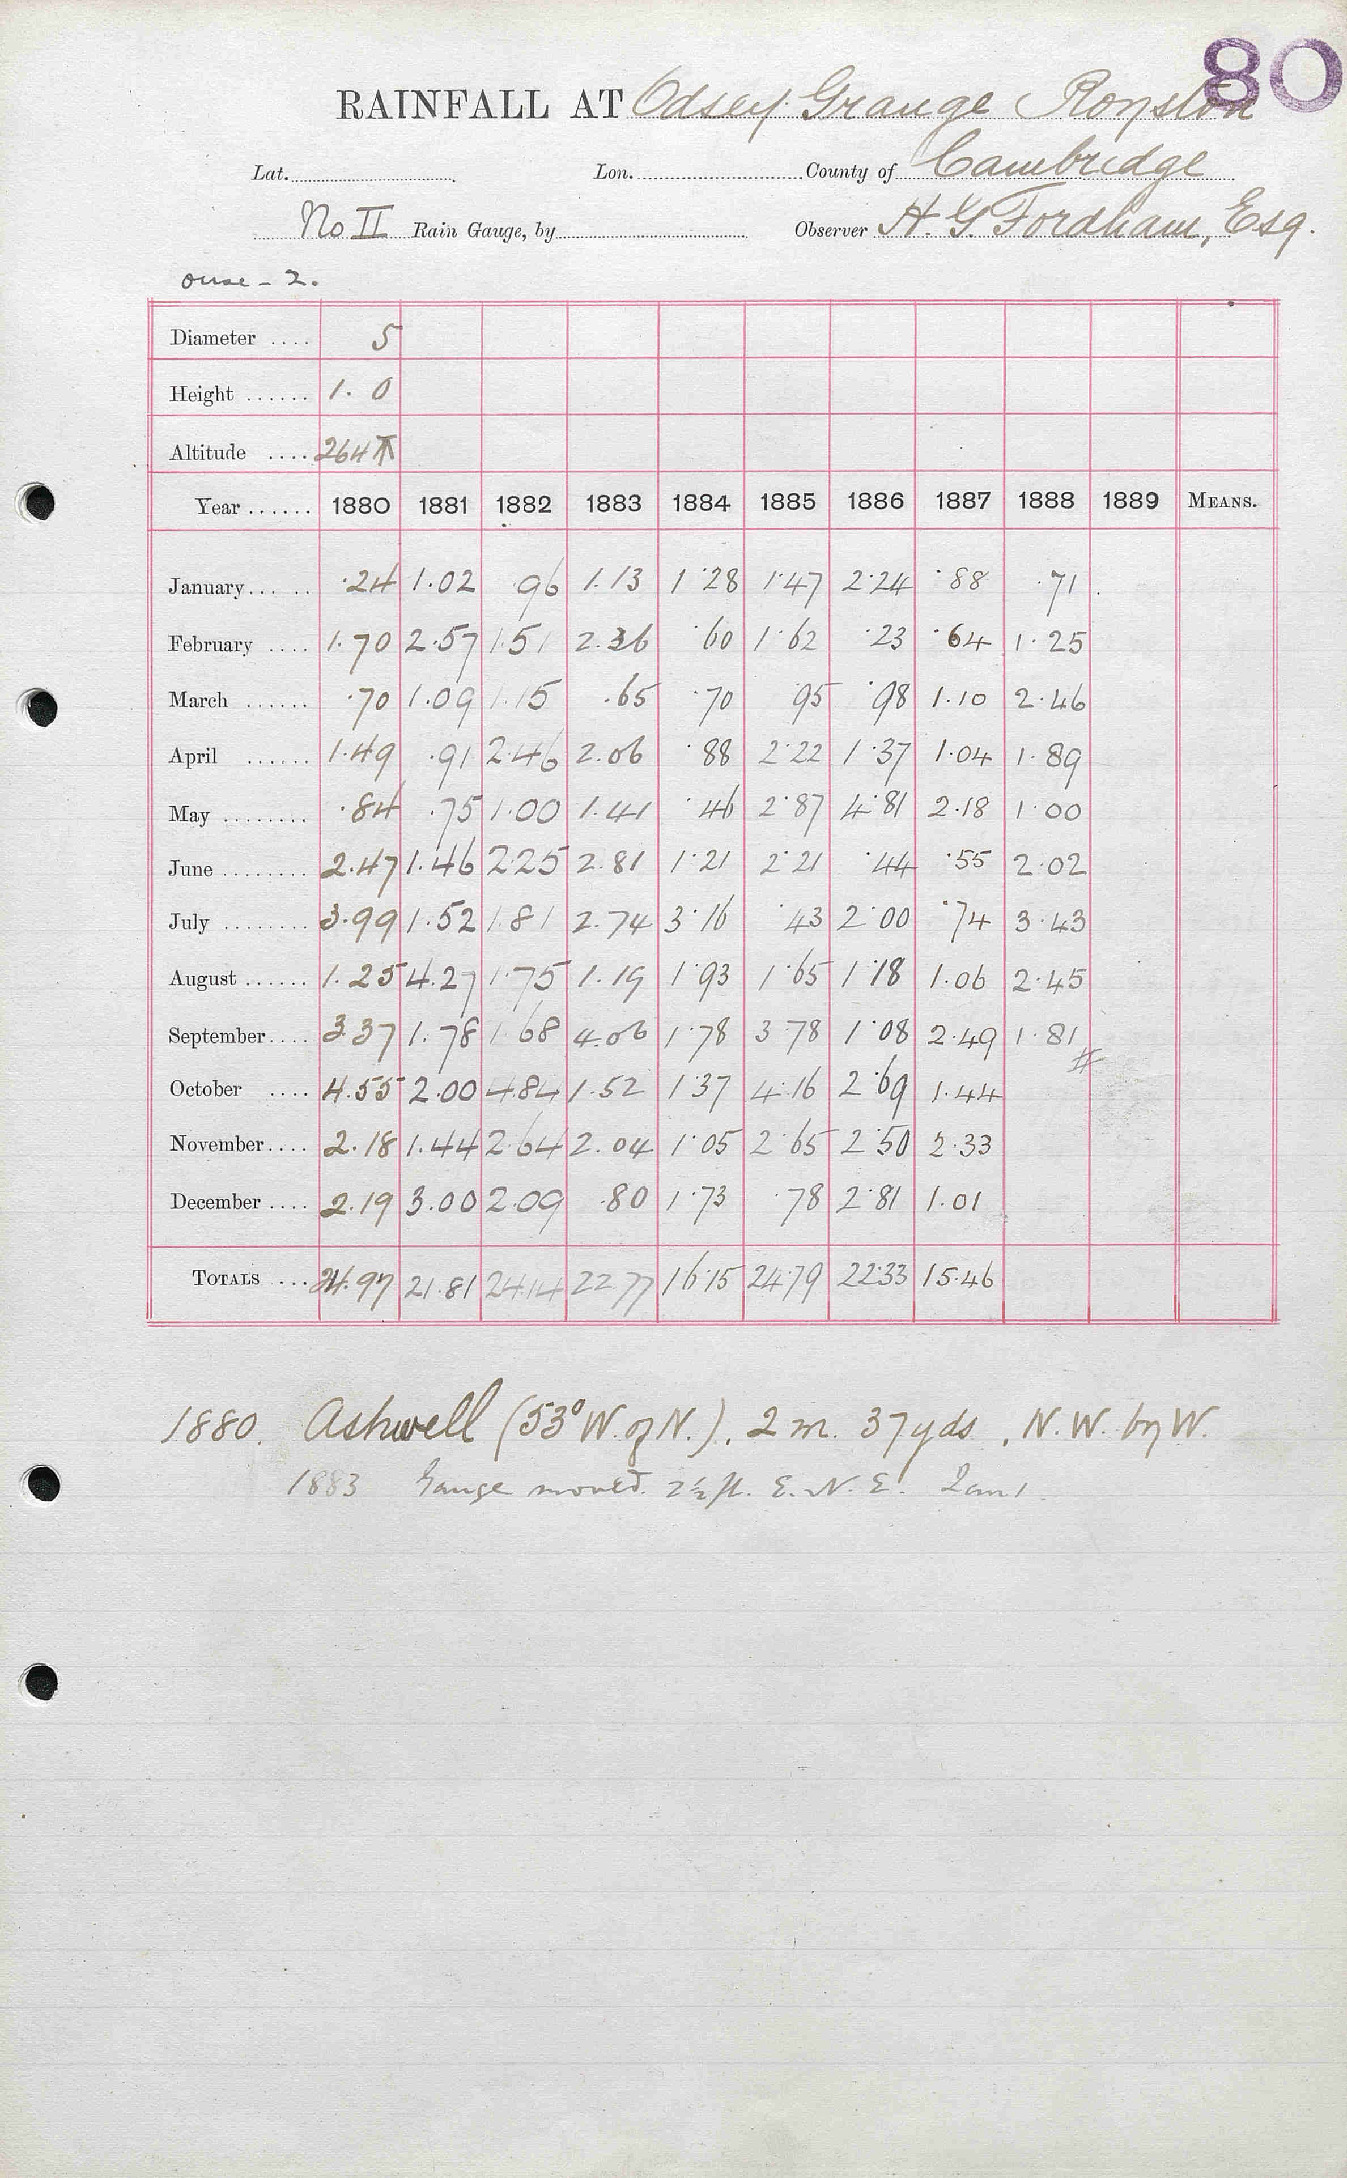 80
RAINFALL AT Odsey Grange Royston
Lat. Lon. County of Cambridge
No II Rain Gauge, by Observer H. G. Fordham, Esq.
Ouse - 2.
Diameter .... 5
Height ...... 1. 0
Altitude .... 264
Year ...... 1880 1881 1882 1883 1884 1885 1886 1887 1888 1889 MEANS.
January ...... .24 1.02 .96 1.13 1.28 1.47 2.24 .88 .71
February .... 1.70 2.57 1.51 2.36 .60 1.62 .23 .64 1.25
March ...... .70 1.09 1.15 .65 .70 .95 .98 1.10 2.46
April ...... 1.49 .91 2.46 2.06 .88 2.22 1.37 1.04 1.89
May ........ .84 .75 1.00 1.41 .46 2.87 4.81 2.18 1.00
June ........ 2.47 1.46 2.25 2.81 1.21 2.21 .44 .55 2.02
July ........ 3.99 1.52 1.81 2.74 3.16 .43 2.00 .74 3.43
August ...... 1.25 4.27 1.75 1.19 1.93 1.65 1.18 1.06 2.45
September .... 3.37 1.78 1.68 4.06 1.78 3.78 1.08 2.49 1.81 #
October .... 4.55 2.00 4.84 1.52 1.37 4.16 2.69 1.44
November .... 2.18 1.44 2.64 2.04 1.05 2.65 2.50 2.33
December .... 2.19 3.00 2.09 .80 1.73 .78 2.81 1.01
TOTALS .... 24.97 21.81 24.14 22.77 16.15 24.79 22.33 15.46
1880. Ashwell (53° W. of N.), 2 m. 37 yds, N.W. by W.
1883 Gauge moved 2½ ft. E.N.E. Jan 1